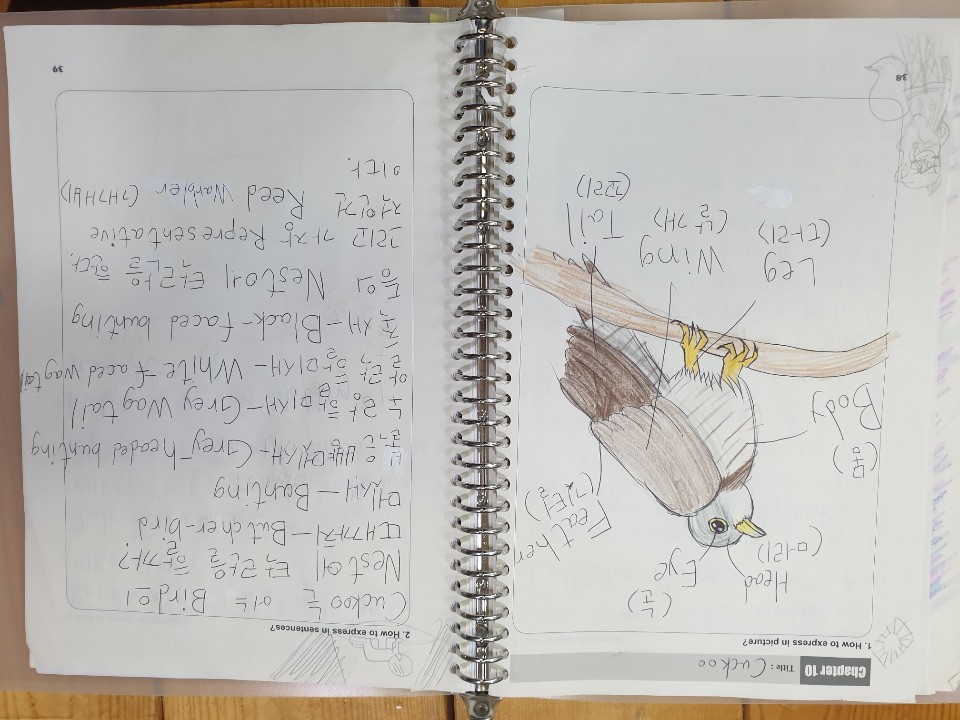 Chapter 10 Title : Cuckoo
1. How to express in picture?
Head
(머리)
Eye
(눈)
Feather
(깃털)
Body
(몸)
Leg
(다리)
Wing
(날개)
Tail
(꼬리)
38
2. How to express in sentences?
Cuckoo 는 어느 Bird의
Nest에 탁란을 할까?
때까치 - Butcher-bird
멧새 - Bunting
붉은뺨멧새 - Grey headed bunting
노랑할미새 - Grey Wagtail
알락할미새 - White faced wagtail
촉새 - Black-faced bunting
등의 Nest에 탁란을 한다.
그리고 가장 Representative
적인건 Reed Warbler (개개비)
이다.
39